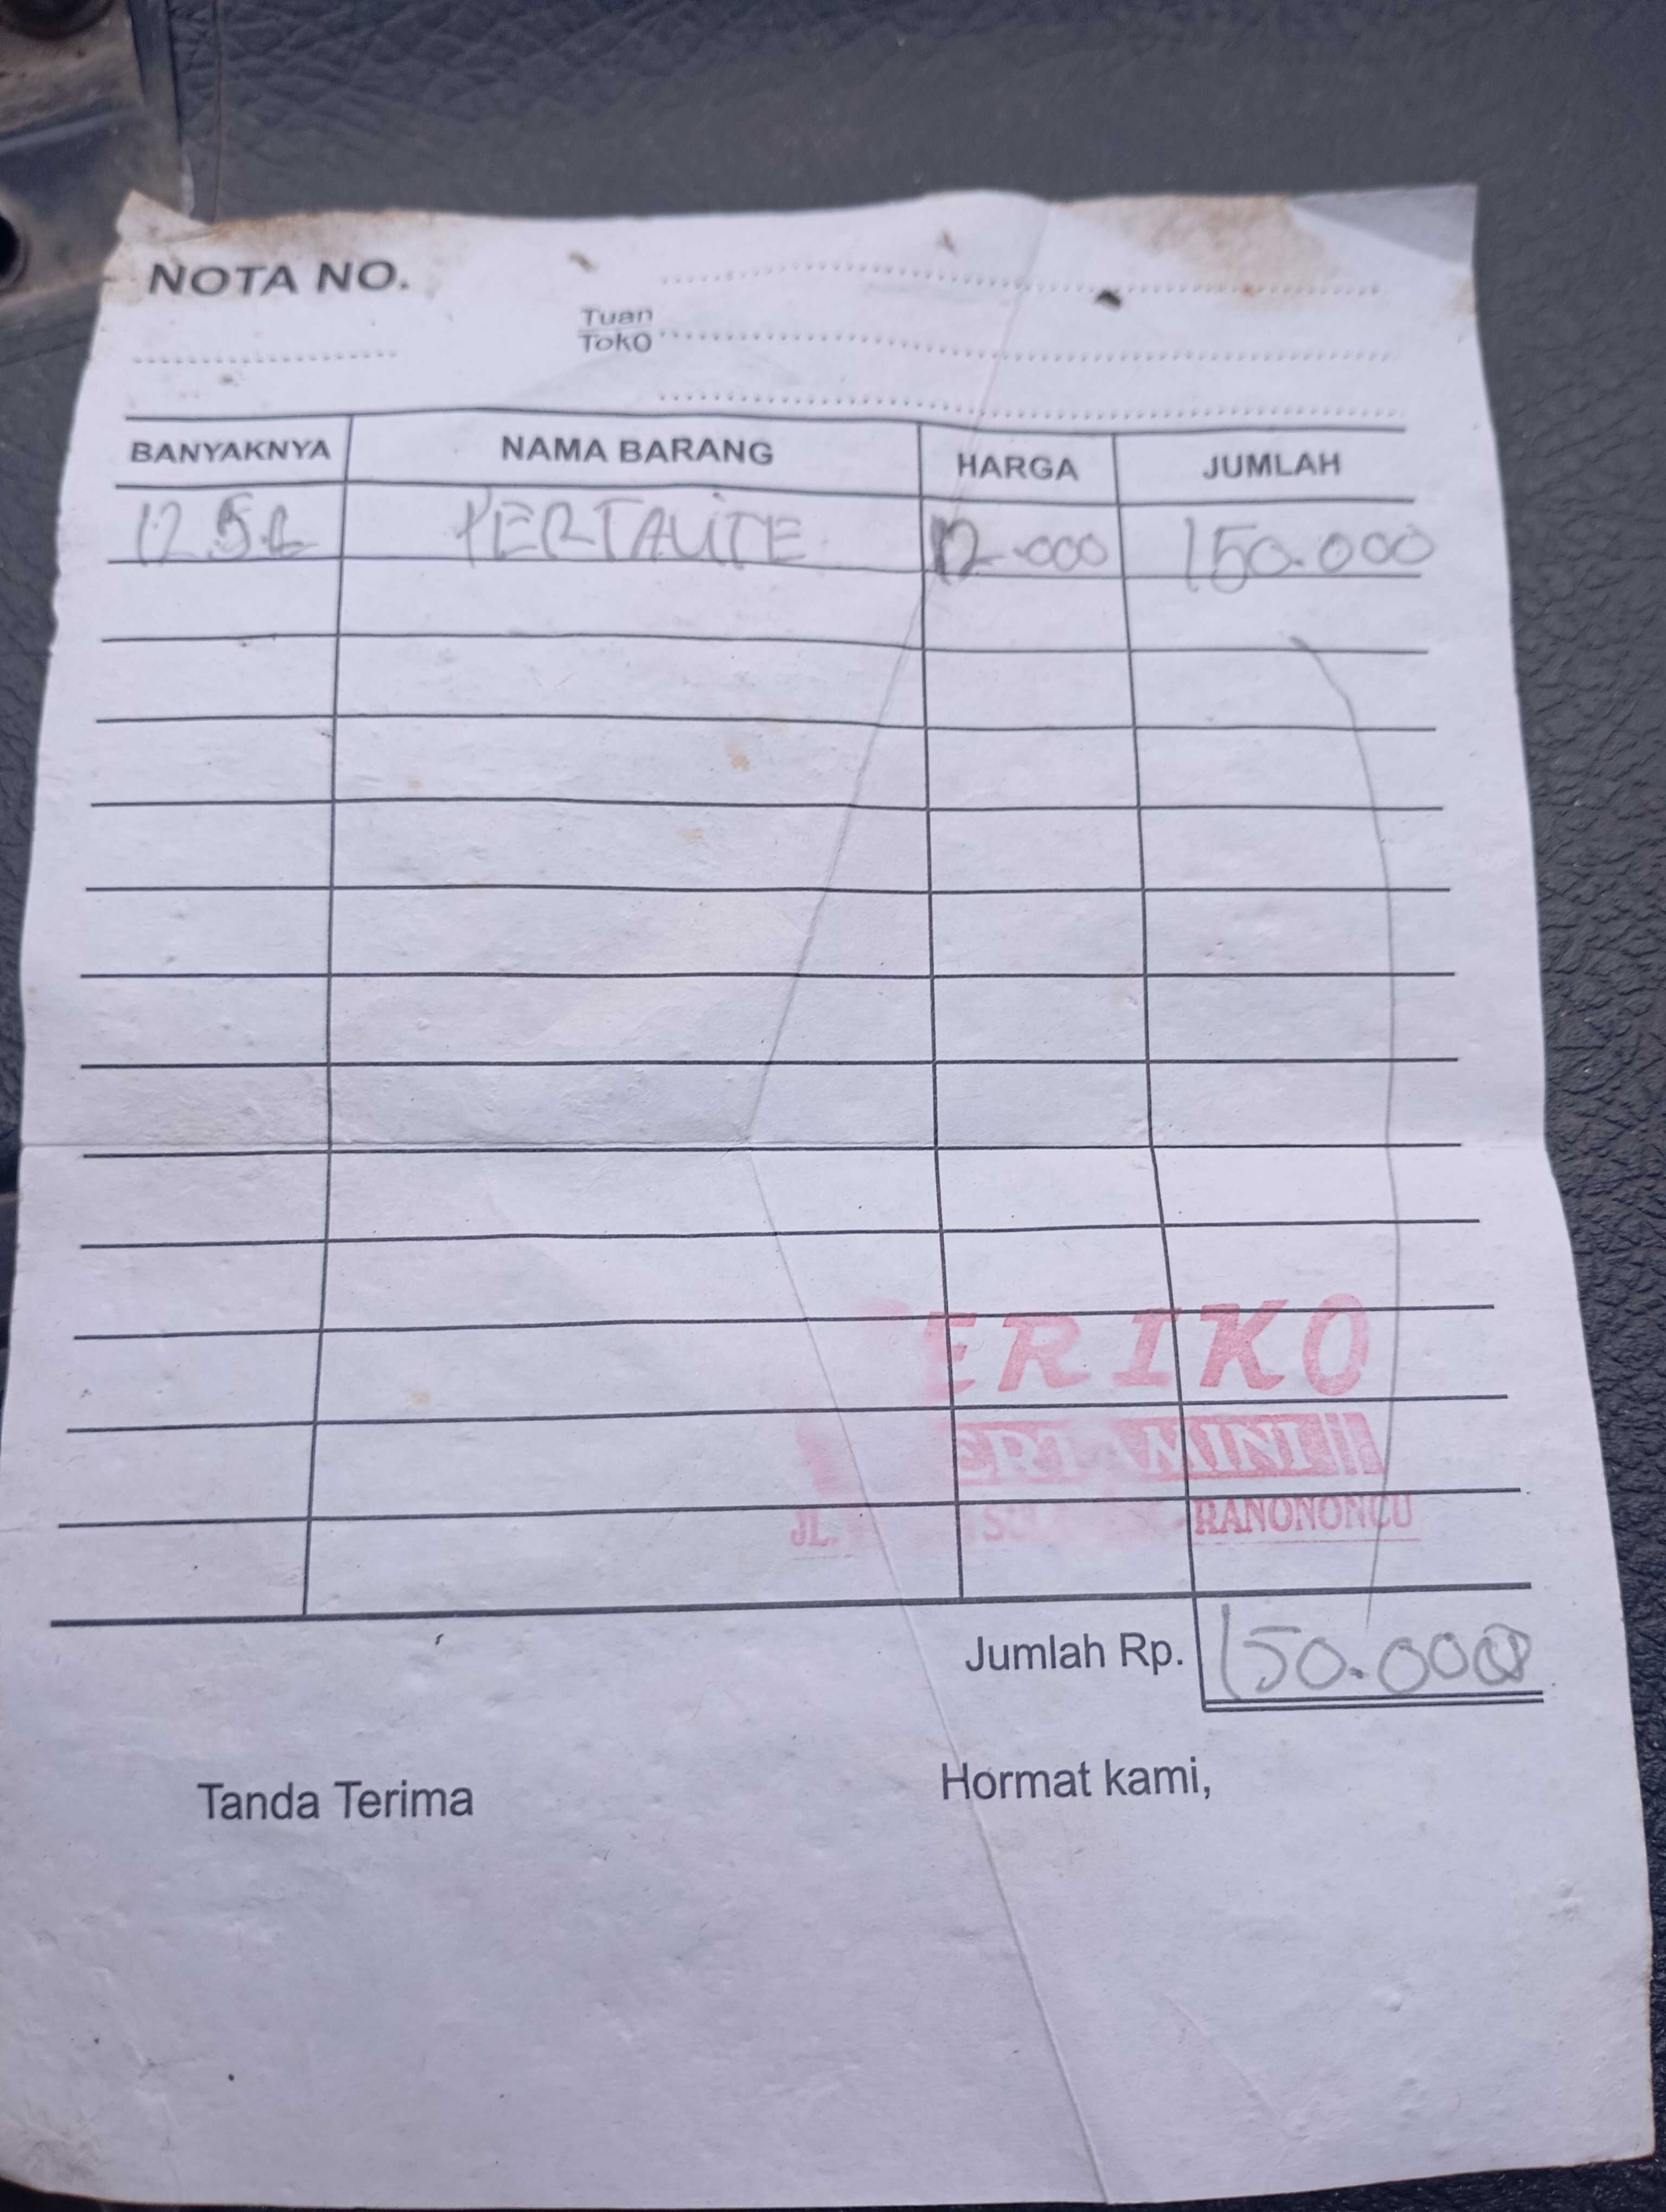 NOTA NO.
Tuan
Toko
BANYAKNYA NAMA BARANG HARGA JUMLAH
12.5L PERTALITE 12.000 150.000
ERIKO
ERTAMINI
JL. RANONONCU
Jumlah Rp. 150.000
Tanda Terima Hormat kami,